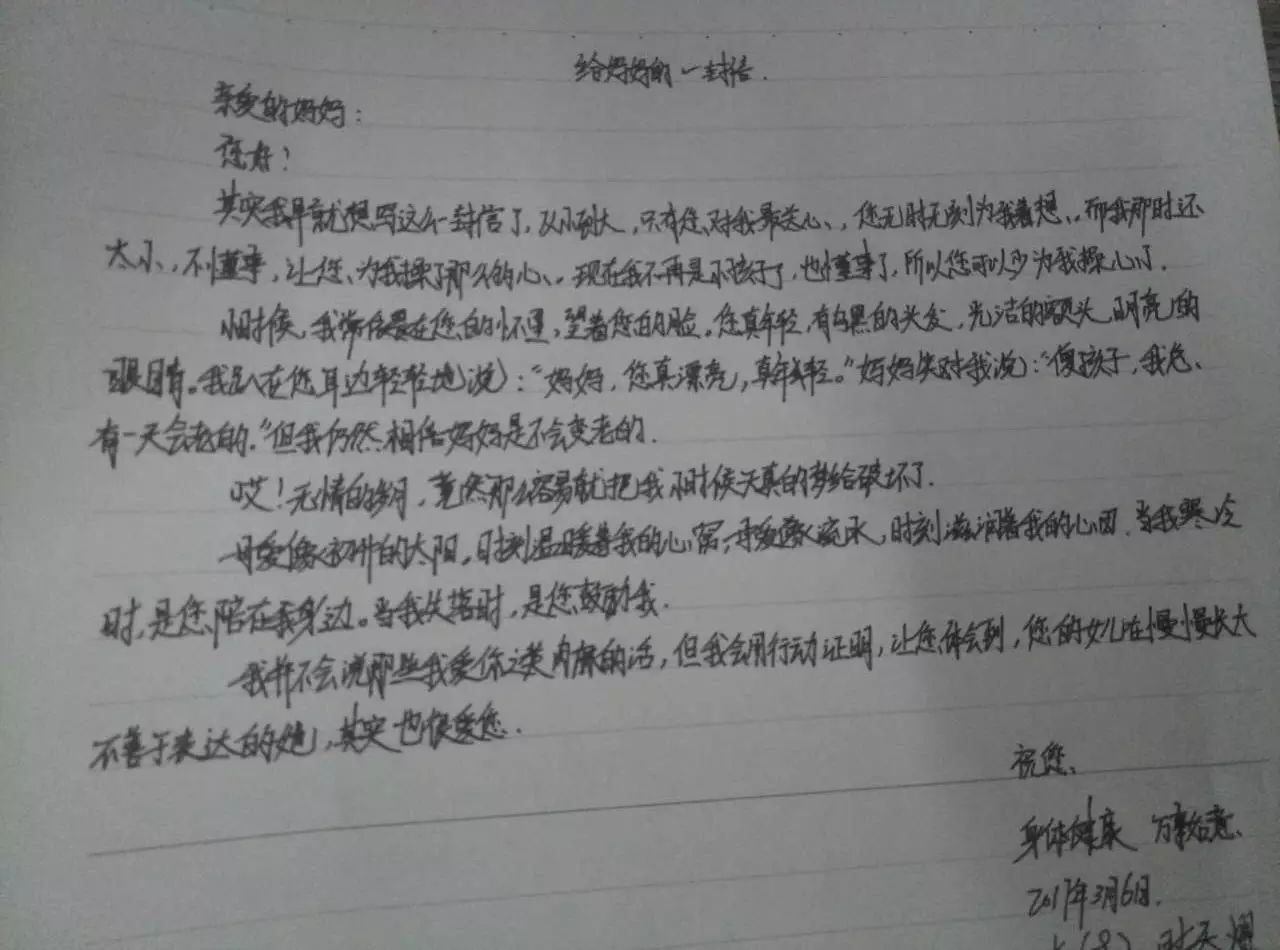 给妈妈的一封信.
亲爱的妈妈:
您好!
其实我早就想写这么一封信了,从小到大,只有您对我最关心,您无时无刻为我着想,而我那时还
太小,不懂事,让您为我操了那么的心,现在我不再是小孩子了,也懂事了,所以您可以少为我操心了.
小时候,我常依偎在您的怀里,望着您的脸,您真年轻,有乌黑的头发,光洁的额头,明亮的
眼睛。我趴在您耳边轻轻地说:"妈妈,您真漂亮,真年轻。"妈妈笑对我说:"傻孩子,我总
有一天会老的."但我仍然相信妈妈是不会变老的.
哎!无情的岁月,竟然那么容易就把我小时候天真的梦给破坏了.
母爱像初升的太阳,时刻温暖着我的心窝,母爱像流水,时刻滋润着我的心田.当我寒冷
时,是您陪在我身边。当我失落时,是您鼓励我.
我并不会说那些我爱你之类肉麻的话,但我会用行动证明,让您体会到,您的女儿在慢慢长大
不善于表达的她,其实也很爱您.
祝您
身体健康 万事如意
2017年3月6日.